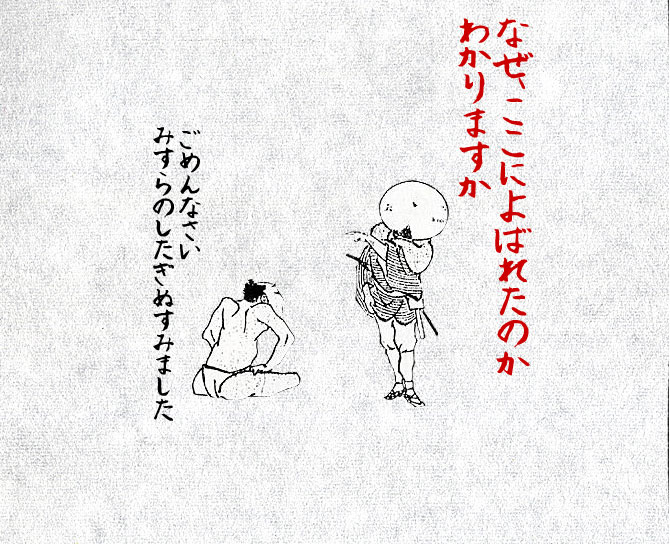 なぜ、ここによばれたのか
わかりますか
ごめんなさい
みすらのしたぎぬすみました